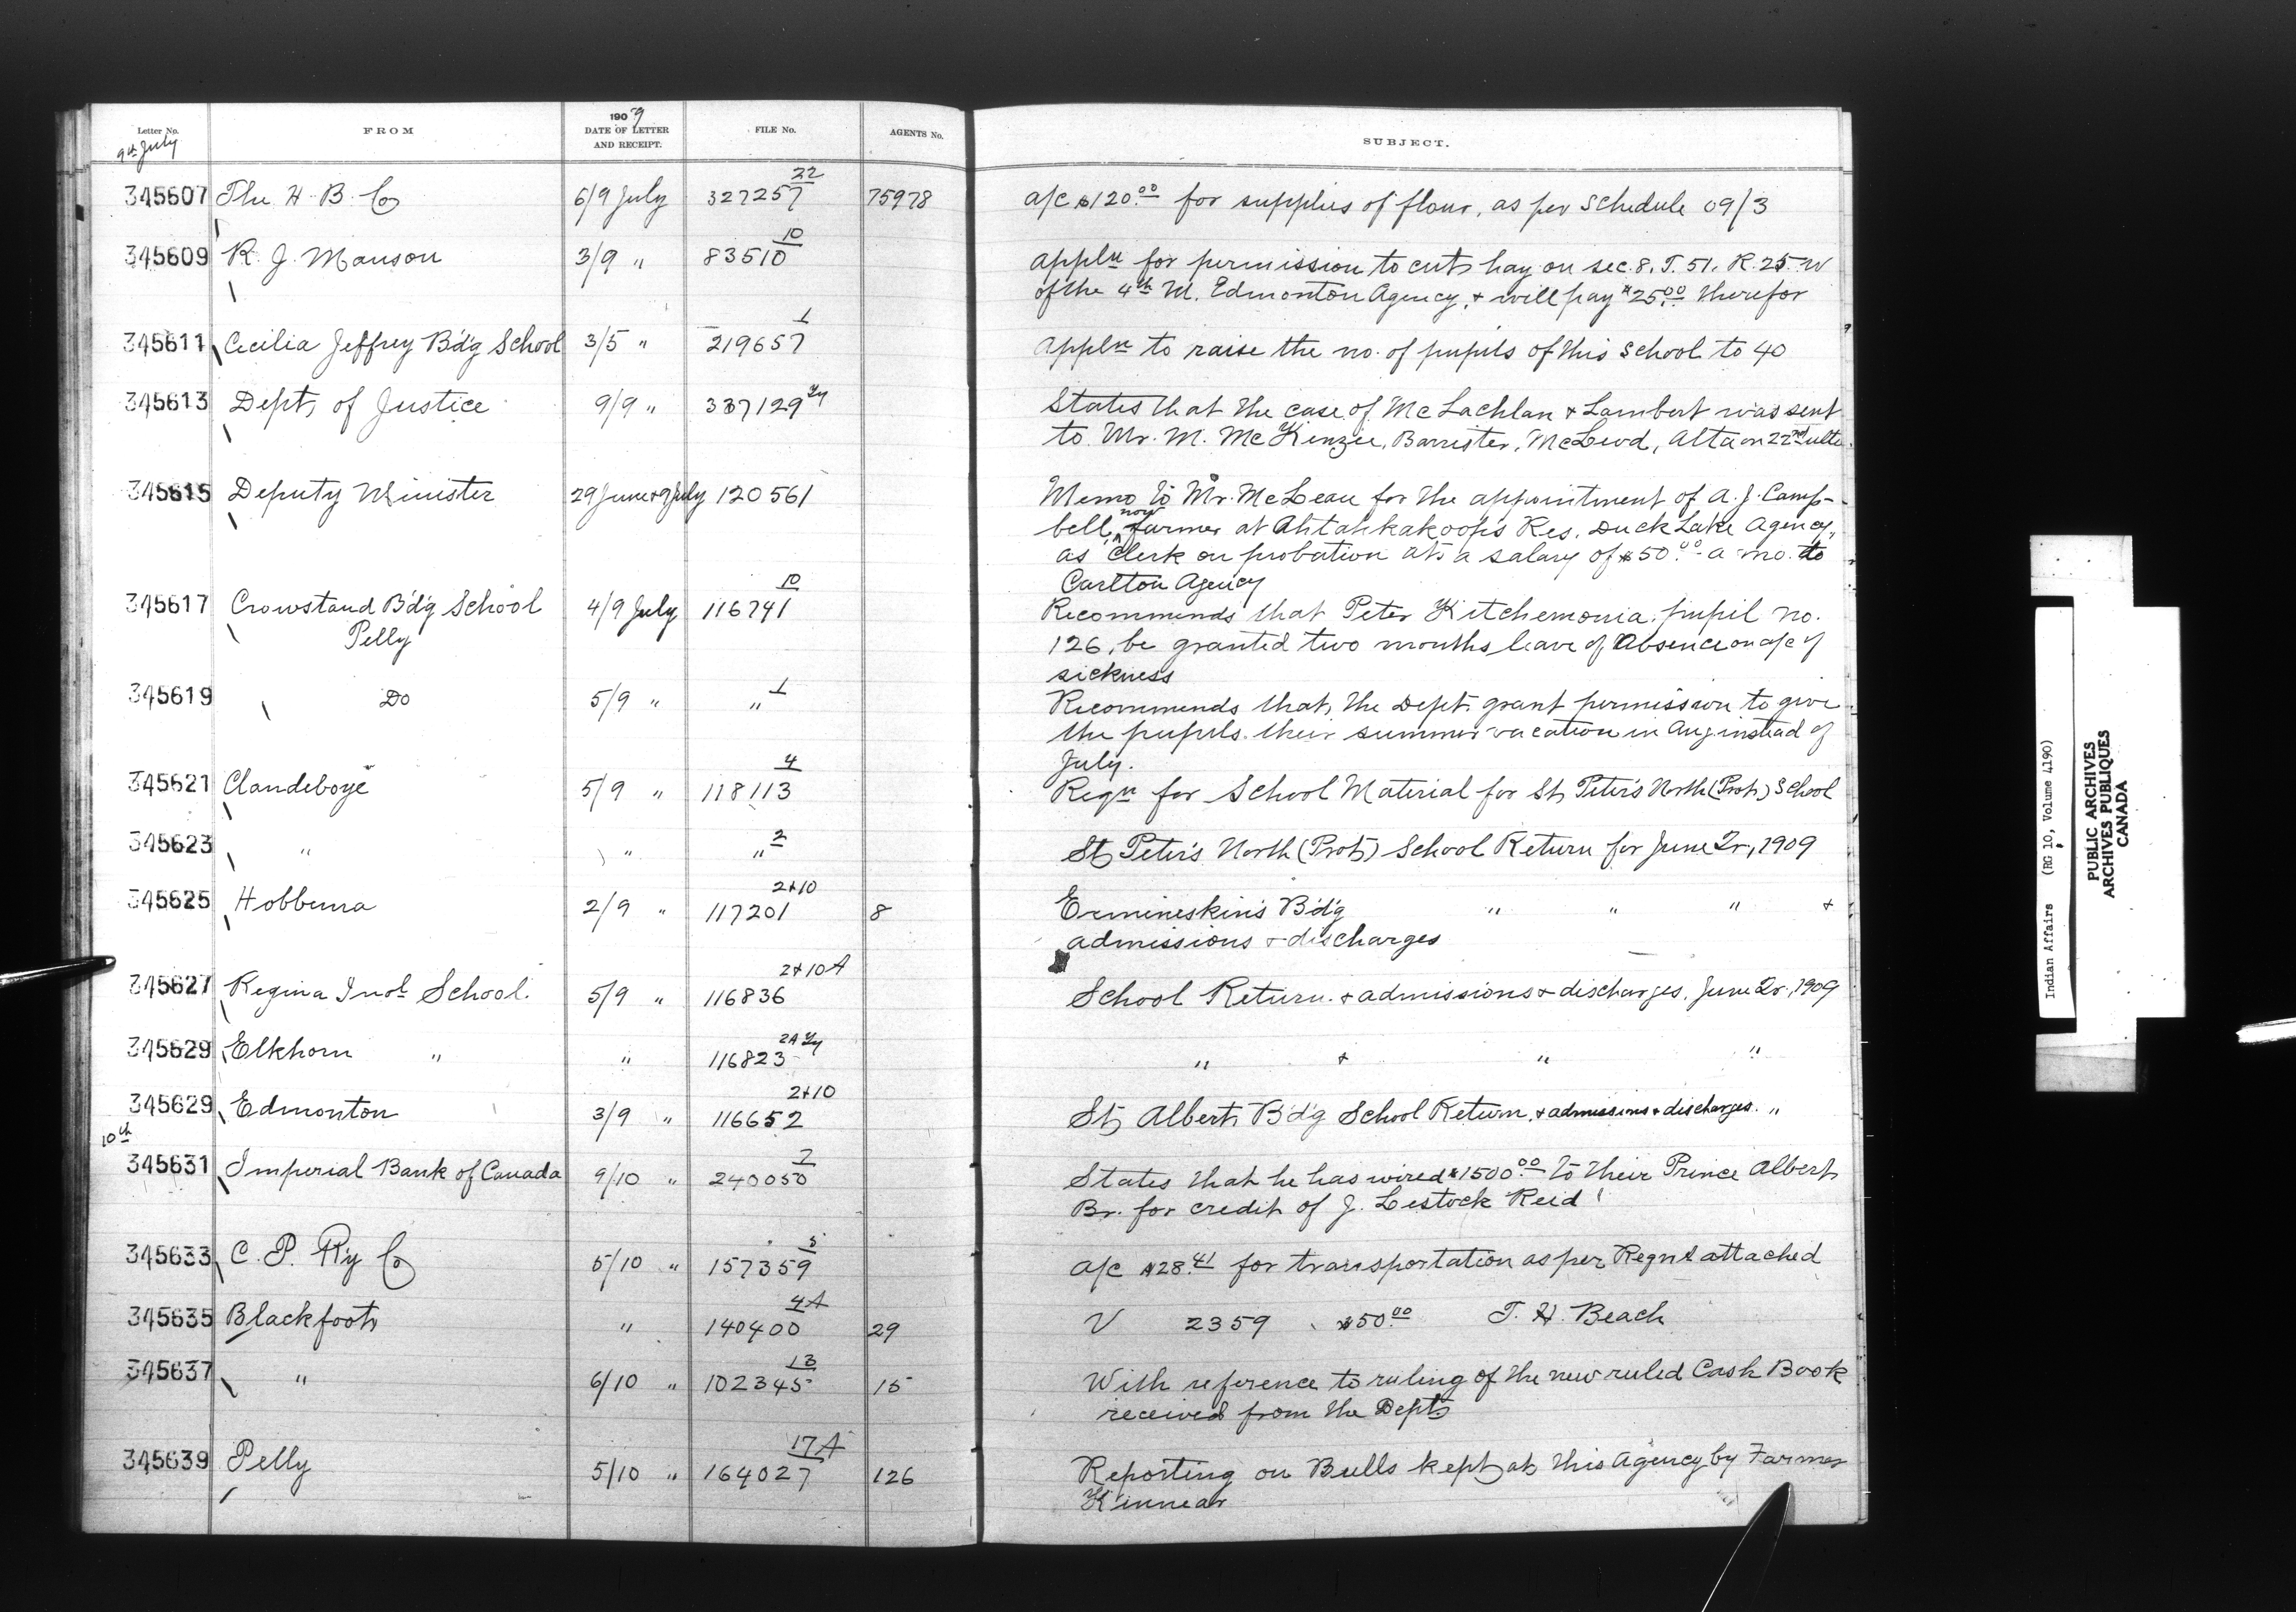 Letter No. FROM 1909 DATE OF LETTER AND RECEIPT. FILE No. AGENTS No. SUBJECT.
9th July
345607 The H. B. Co 6/9 July 327257 22 75978 a/c $120.00 for supplies of flour, as per Schedule 09/3
345609 R. J. Manson 3/9 " 83510 10 Appln for permission to cut hay on sec. 8. T. 51. R. 25. W
of the 4th M. Edmonton Agency, & will pay $25.00 therefor
345611 Cecilia Jeffrey Bdg School 3/5 " 219657 1 Appln to raise the no. of pupils of this School to 40
345613 Dept. of Justice 9/9 " 337129 States that the case of McLachlan & Lambert was sent
to Mr. M. McKenzie, Barrister, McLeod, Alta on 22nd ulto.
345615 Deputy Minister 29 June & 9 July 120561 Memo to Mr. McLean for the appointment of A. J. Camp-
bell, now farmer at Ahtahkakoops Res. Duck Lake Agency,
as Clerk on probation at a salary of $50.00 a mo. to
Carlton Agency
345617 Crowstand Bdg School 4/9 July 116741 10 Recommends that Peter Kitchemonia, pupil no.
Pelly 126, be granted two months leave of Absence on a/c of
sickness
345619 Do 5/9 " " 1 Recommends that, the Dept. grant permission to give
the pupils their summer vacation in Aug. instead of
July.
345621 Clandeboye 5/9 " 118113 4 Reqn for School Material for St. Peter's North (Prot.) School
345623 " " " 2 St. Peter's North (Prot.) School Return for June Qr, 1909
345625 Hobbema 2/9 " 117201 2&10 8 Ermineskin's Bdg " " " &
admissions & discharges
345627 Regina Indl School. 5/9 " 116836 2&10A School Return. & admissions & discharges, June Qr, 1909
345629 Elkhorn " " 116823 " & " "
345629 Edmonton 3/9 " 116652 2&10 St. Albert Bdg School Return, & admissions & discharges. "
10th
345631 Imperial Bank of Canada 9/10 " 240050 7 States that he has wired $1500.00 to their Prince Albert
Br. for credit of J. Lestock Reid
345633 C. P. Ry Co 5/10 " 157359 5 a/c $28.41 for transportation as per Reqn attached
345635 Blackfoot " 140400 4A 29 V 2359 $50.00 T. H. Beach
345637 " 6/10 " 102345 13 15 With reference to ruling of the new ruled Cash Book
received from the Dept
345639 Pelly 5/10 " 164027 17A 126 Reporting on Bulls kept at this Agency by Farmer
Kinnear
Indian Affairs (RG 10, Volume 4190)
PUBLIC ARCHIVES
ARCHIVES PUBLIQUES
CANADA